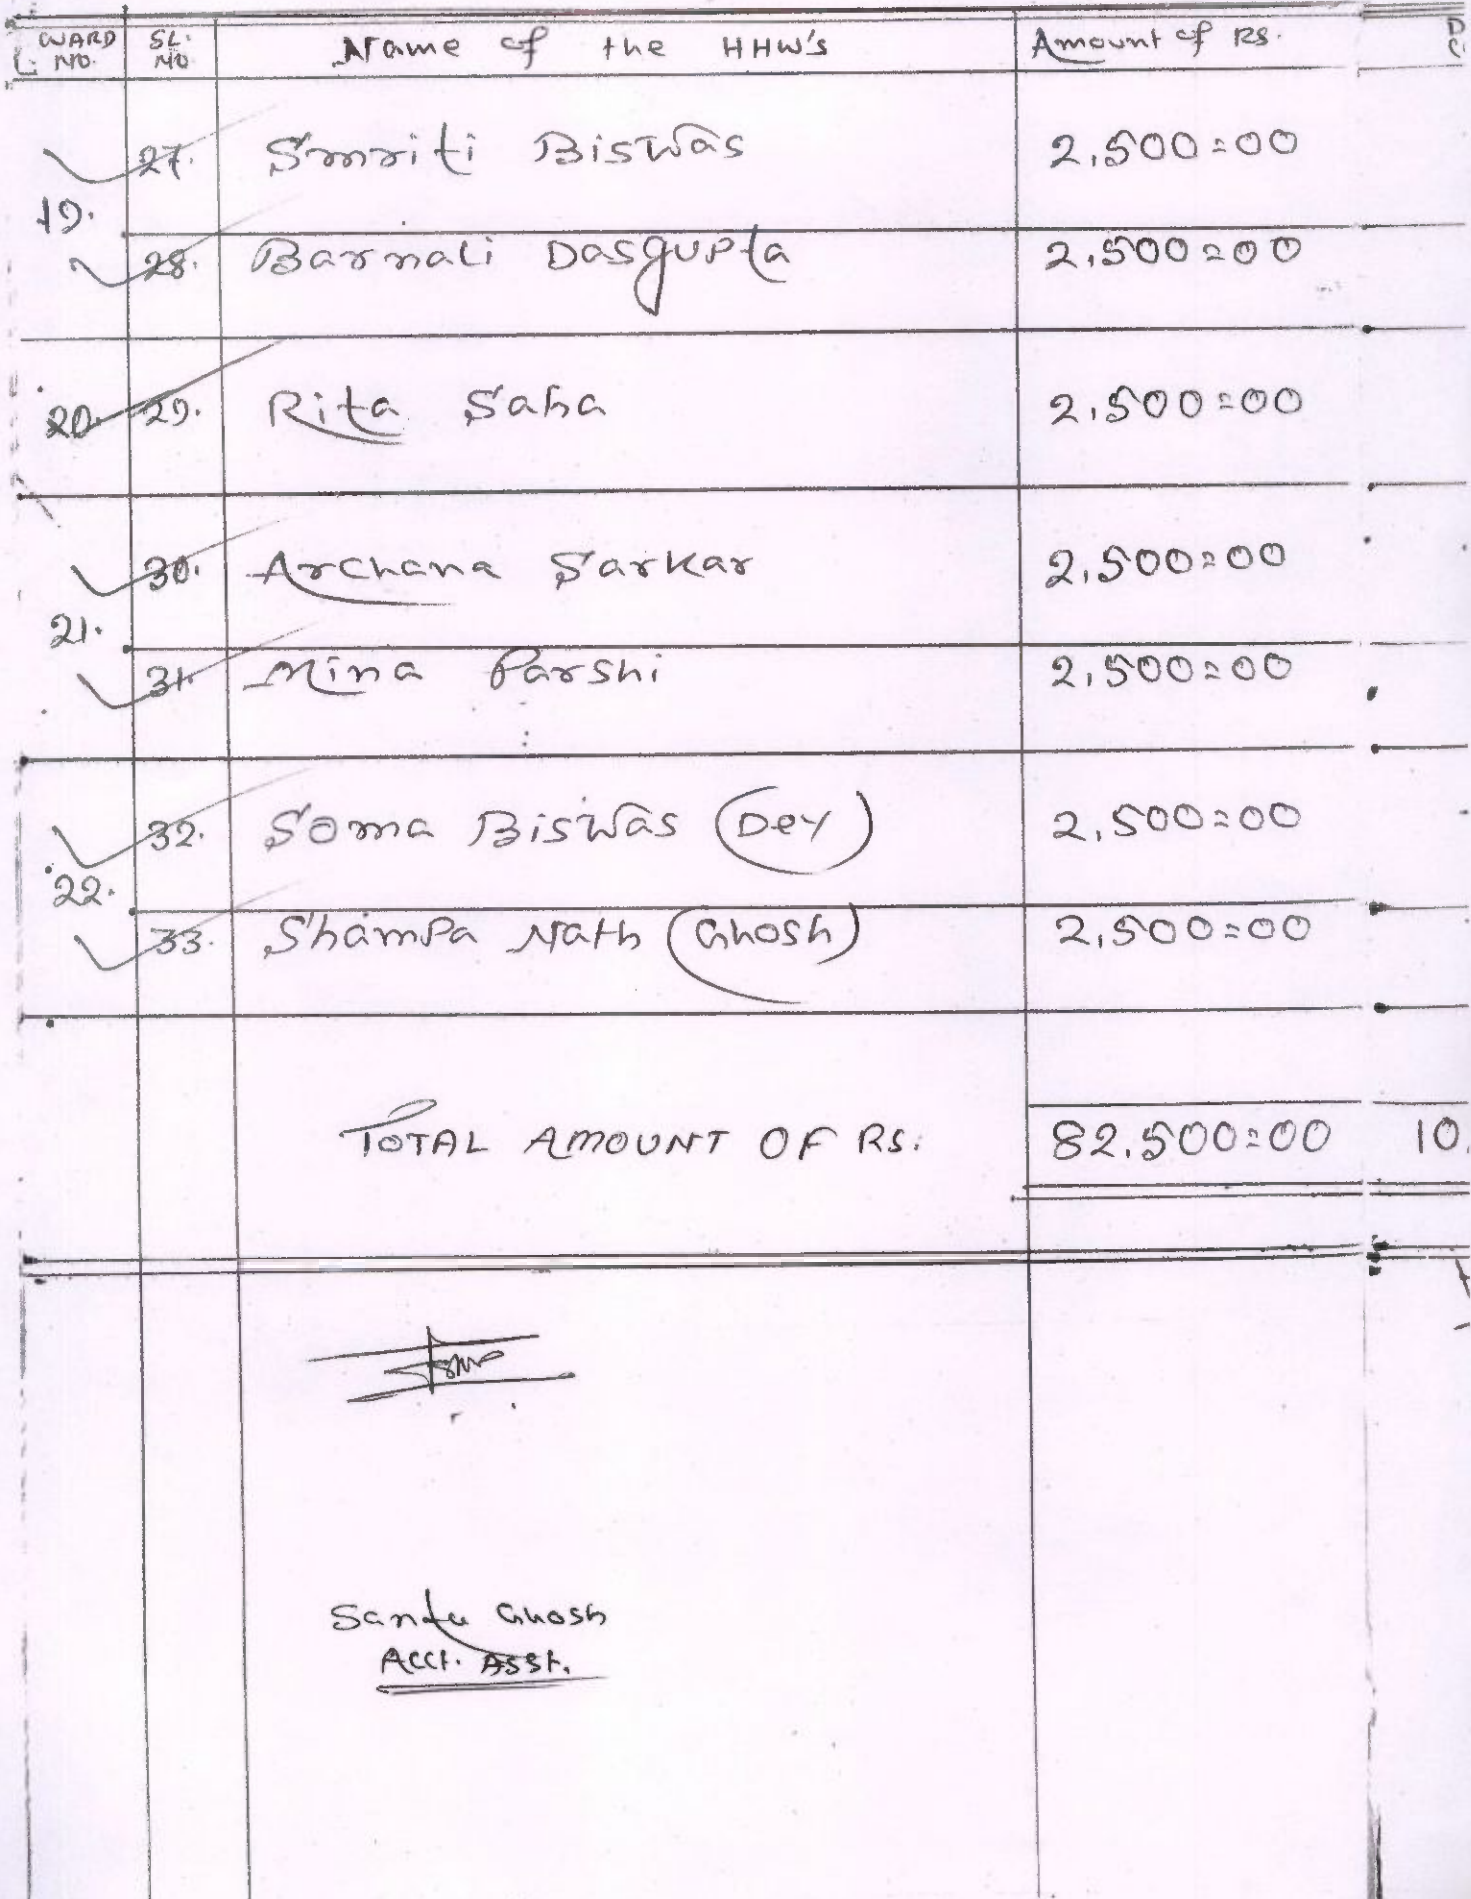 WARD NO. SL. NO Name of the HHW's Amount of RS.
27. Smriti Biswas 2,500=00
19.
28. Barnali Dasgupta 2,500=00
20. 29. Rita Saha 2,500=00
30. Archana Sarkar 2,500=00
21.
31. Mina Parshi 2,500=00
32. Soma Biswas (Dey) 2,500=00
22.
33. Shampa Nath (Ghosh) 2,500=00
TOTAL AMOUNT OF RS. 82,500=00 10.
Santu Ghosh
Acct. Asst.